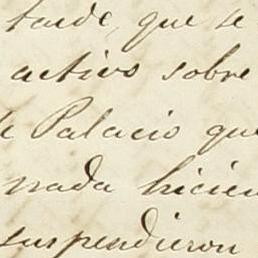 tarde, que se
activo sobre
de Palacio que
nada hicien
suspendieron